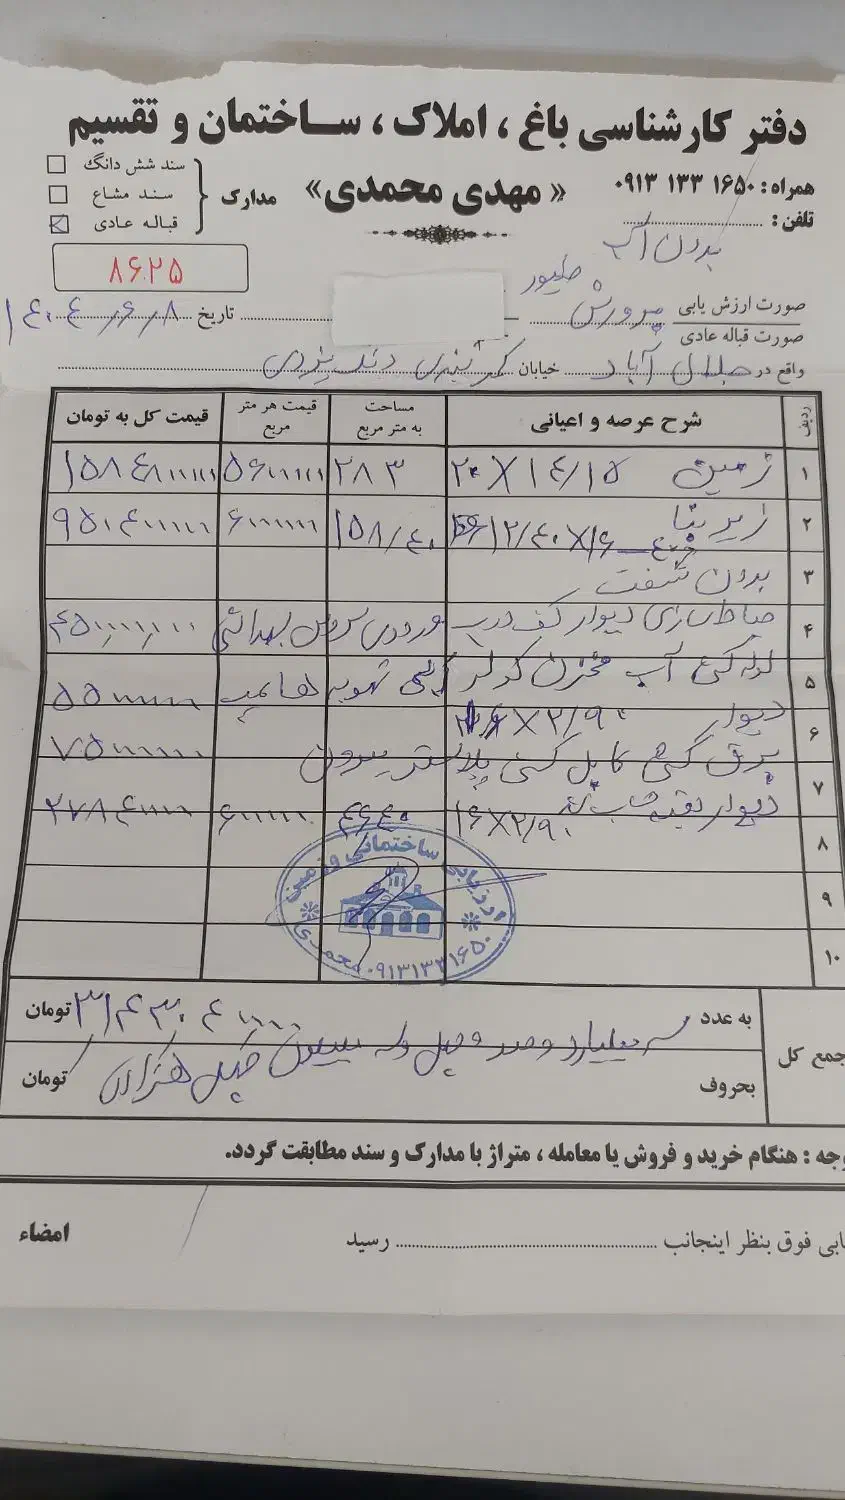 دفتر کارشناسی باغ ، املاک ، ساختمان و تقسیم
« مهدی محمدی»
همراه : ۰۹۱۳ ۱۳۳ ۱۶۵۰
تلفن :
مدارک
سند شش دانگ
سند مشاع
قباله عادی
۸۶۲۵
بدون آب
صورت ارزش یابی
صورت قباله عادی
پرورش طیور
تاریخ ۱۴۰۴/۶/۸
واقع در جلال آباد خیابان
ردیف شرح عرصه و اعیانی مساحت به متر مربع قیمت هر متر مربع قیمت کل به تومان
۱ زمین ۲۰X۱۴/۱۵ ۲۸۳ ۵۶۰۰۰۰۰ ۱۵۸۴۸۰۰۰۰۰
۲ زیر بنا ۱۲/۴۰X۱۶ ۱۵۸/۴۰ ۶۰۰۰۰۰۰ ۹۵۰۴۰۰۰۰۰
۳ بدون شفت
۴ حیاط سازی دیوار کف درب ورودی سرویس بهداشتی
۵ لوله کشی آب مخزن کولر تهویه
۶ دیوار X۲/۹۰
برق کشی کابل کشی پلاستر بیرون
۷ دیوار ۱۶X۲/۹۰ ۴۶۴۰ ۶۰۰۰۰۰۰ ۲۷۸۴۰۰۰۰۰
۸
۹
۱۰
ارزیابی ساختمانی و زمین
محمدی ۰۹۱۳۱۳۳۱۶۵۰
جمع کل
به عدد ۳۱۴۳۰۴۰۰۰۰ تومان
بحروف سه میلیارد و صد و چهل و سه میلیون چهل هزار تومان
وجه : هنگام خرید و فروش یا معامله ، متراژ با مدارک و سند مطابقت گردد.
ابی فوق بنظر اینجانب رسید
امضاء